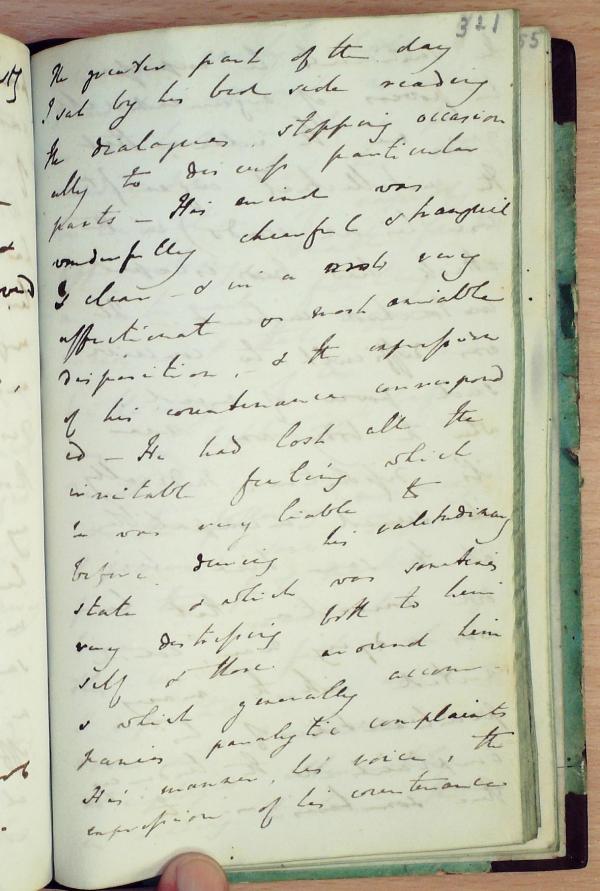 321
55
The greater part of the day
I sat by his bed side reading
the dialogues, stopping occasion
ally to discuss particular
parts — His mind was
wonderfully cheerful & tranquil
& clear — & in a most very
affectionate & most amiable
disposition, & the expression
of his countenance correspond
ed — He had lost all the
irritable feeling which
he was very liable to
before during his valetudinary
state & which was sometimes
very distressing both to him
self & those around him
& which generally accom
panies paralytic complaints
His manner, his voice, the
expression of his countenance